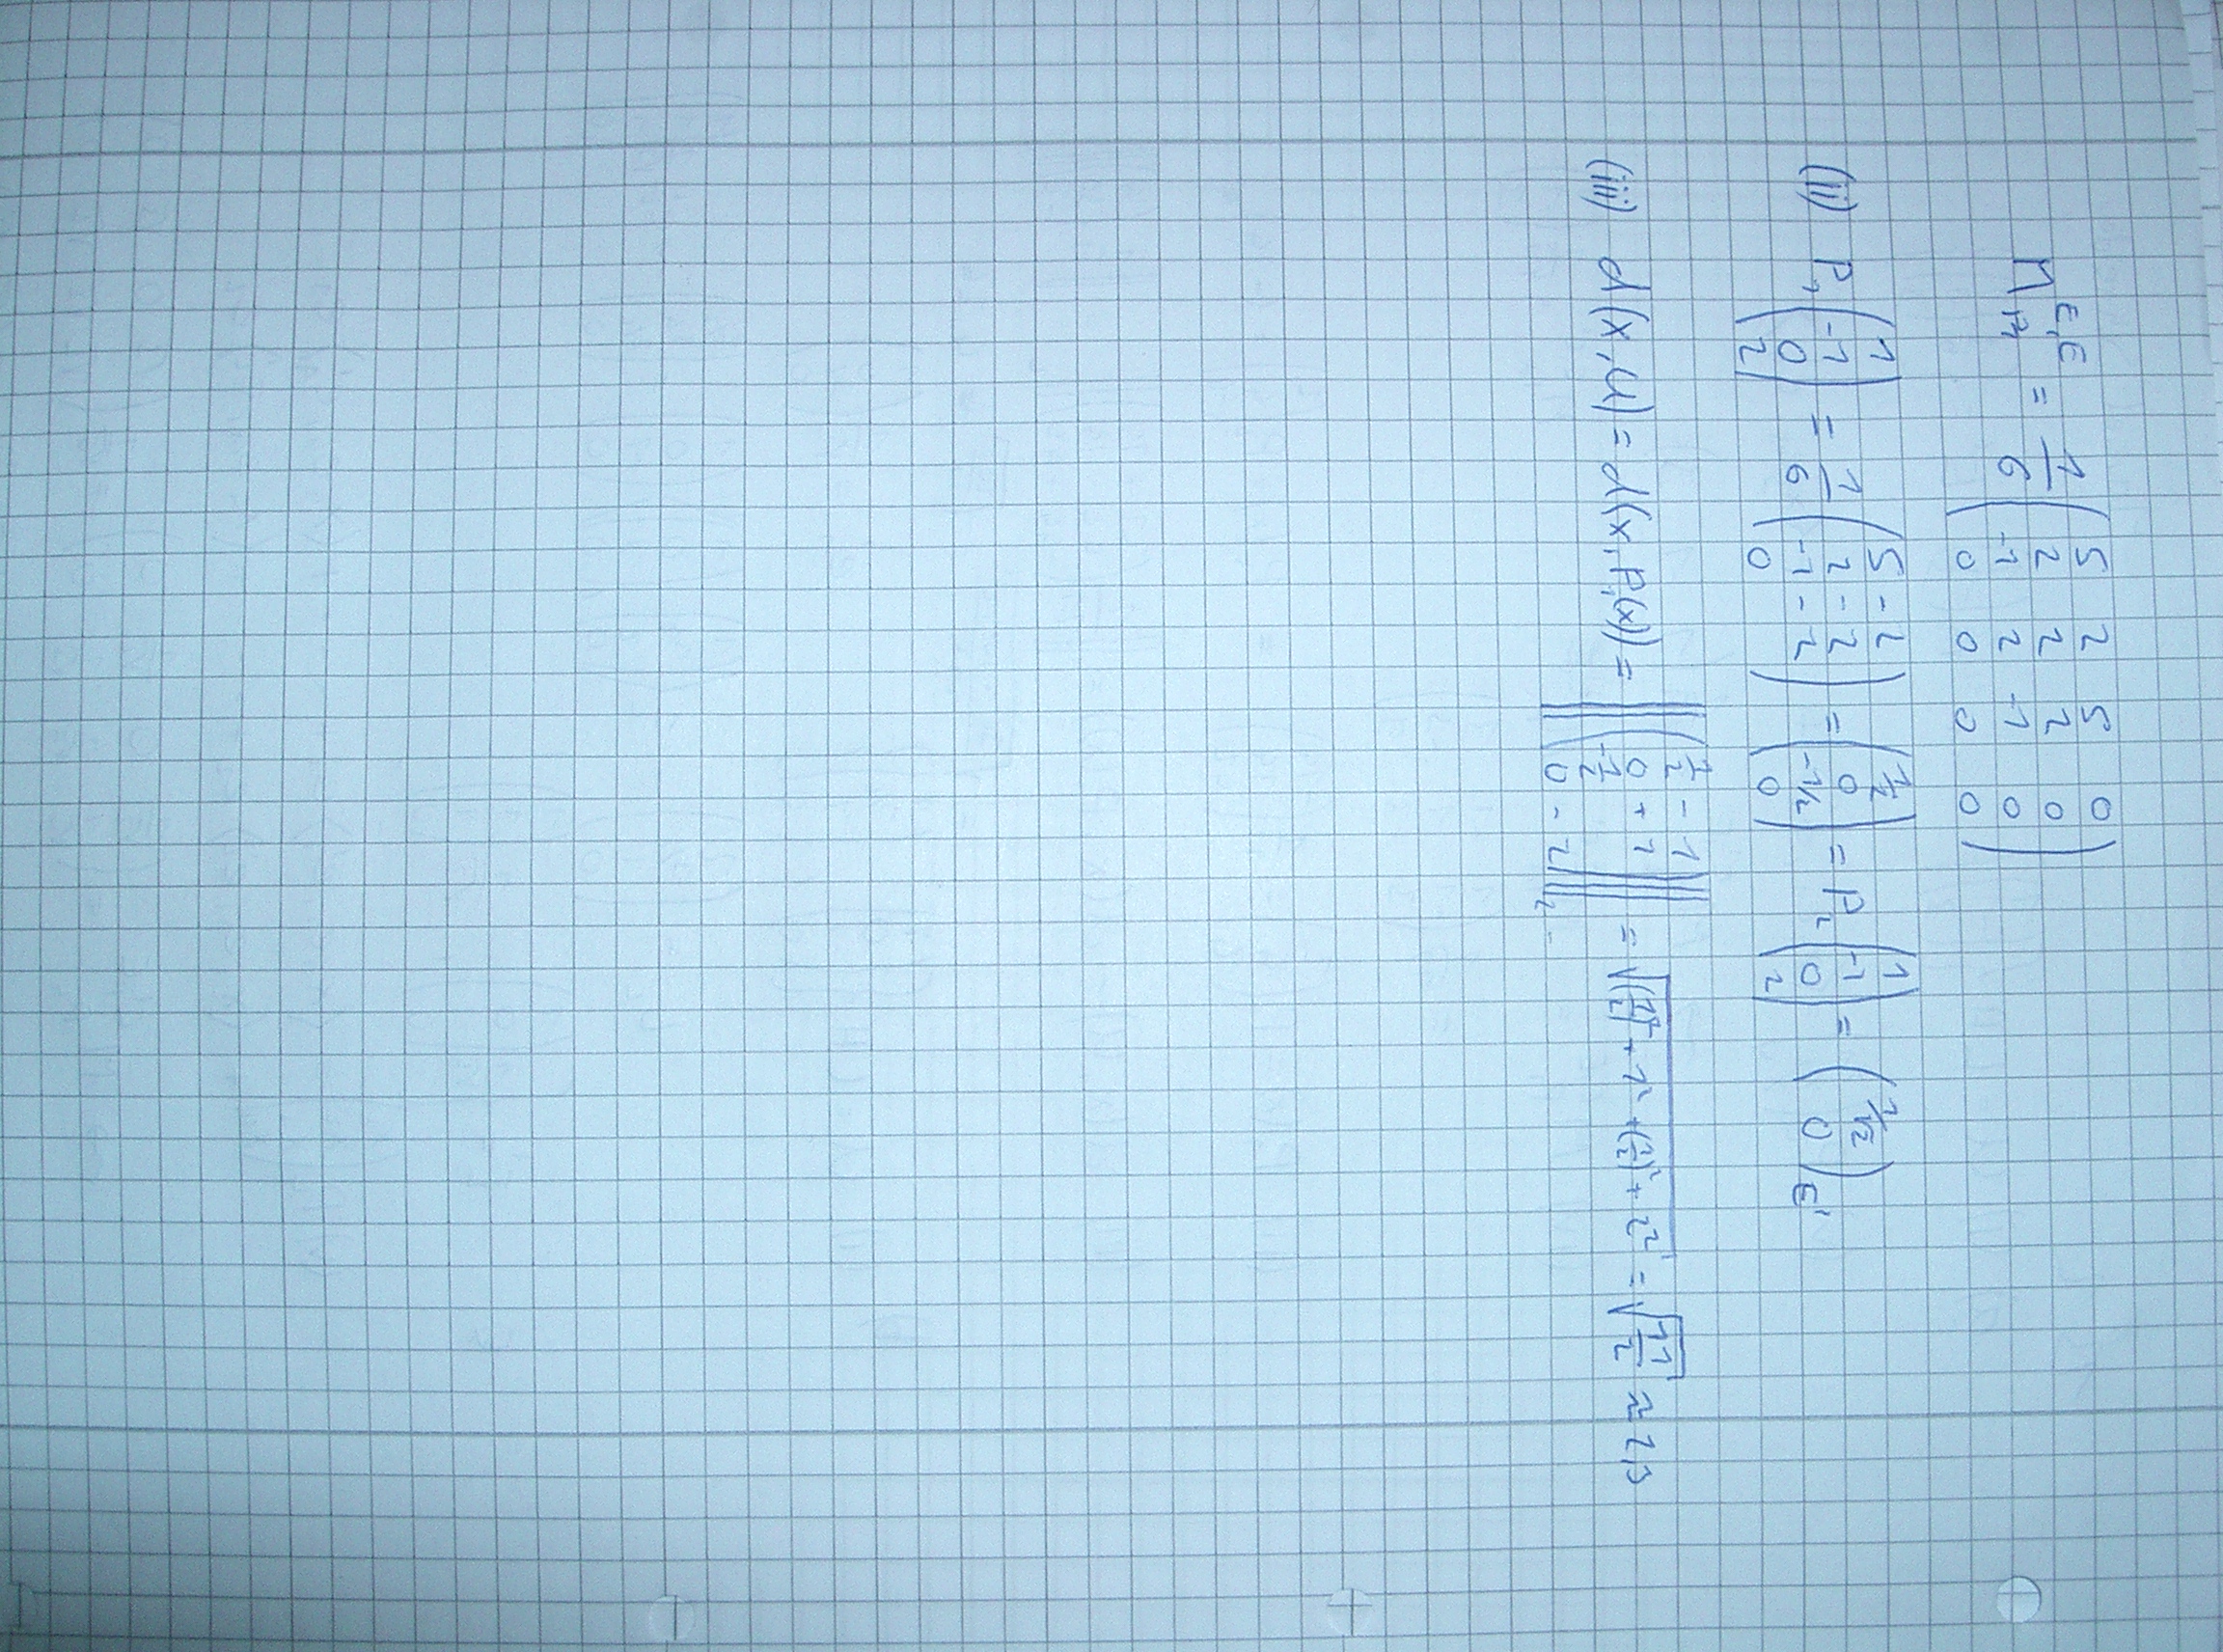 M_{P₁}^{E,E} = 1/6 ( 5 2 5 0
2 2 2 0
-1 2 -1 0
0 0 0 0 )
(ii) P₁ ( 1 -1 0 2 ) = 1/6 ( 5-2 2-2 -1-2 0 ) = ( 1/2 0 -1/2 0 ) = P₂ ( 1 -1 0 2 ) = ( 1/√2 0 )_{E'}
(iii) d(x,U) = d(x,P₁(x)) = ‖( 1/2 - 1 0 + 1 -1/2 0 - 2 )‖₂ = √((1/2)² + 1² + (1/2)² + 2²) = √(11/2) ≈ 2,3